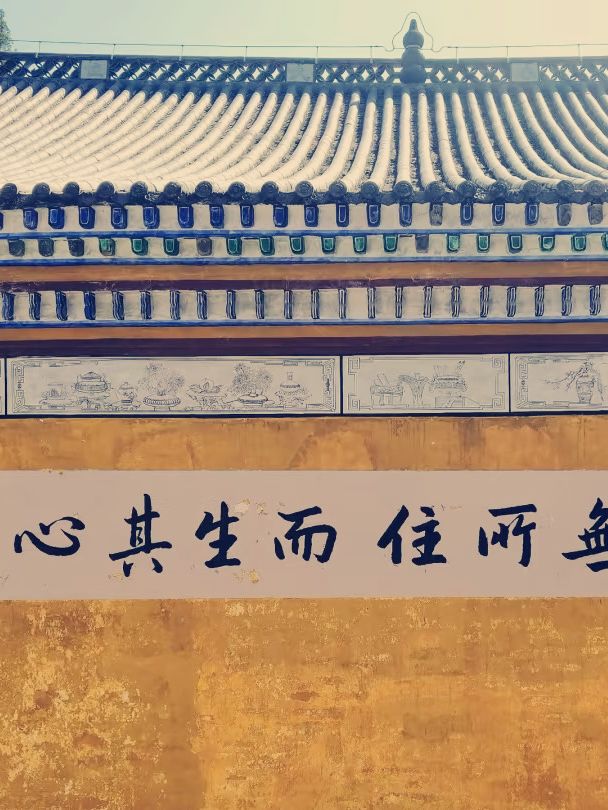 無所住而生其心